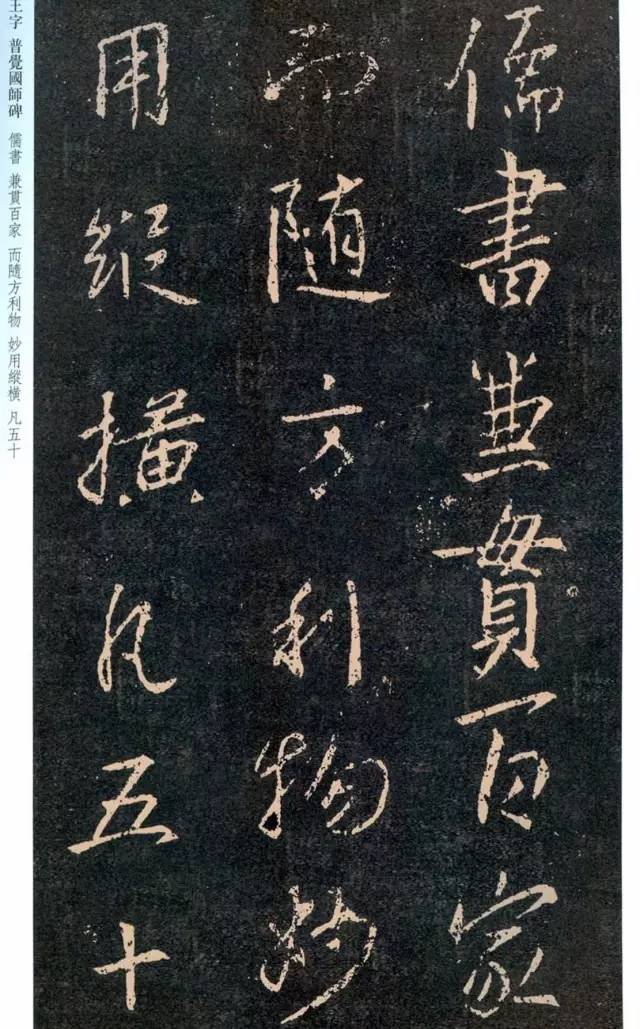 儒書兼貫百家
而随方利物妙
用縱橫凡五十
王字 普覺國師碑 儒書 兼貫百家 而隨方利物 妙用縱橫 凡五十